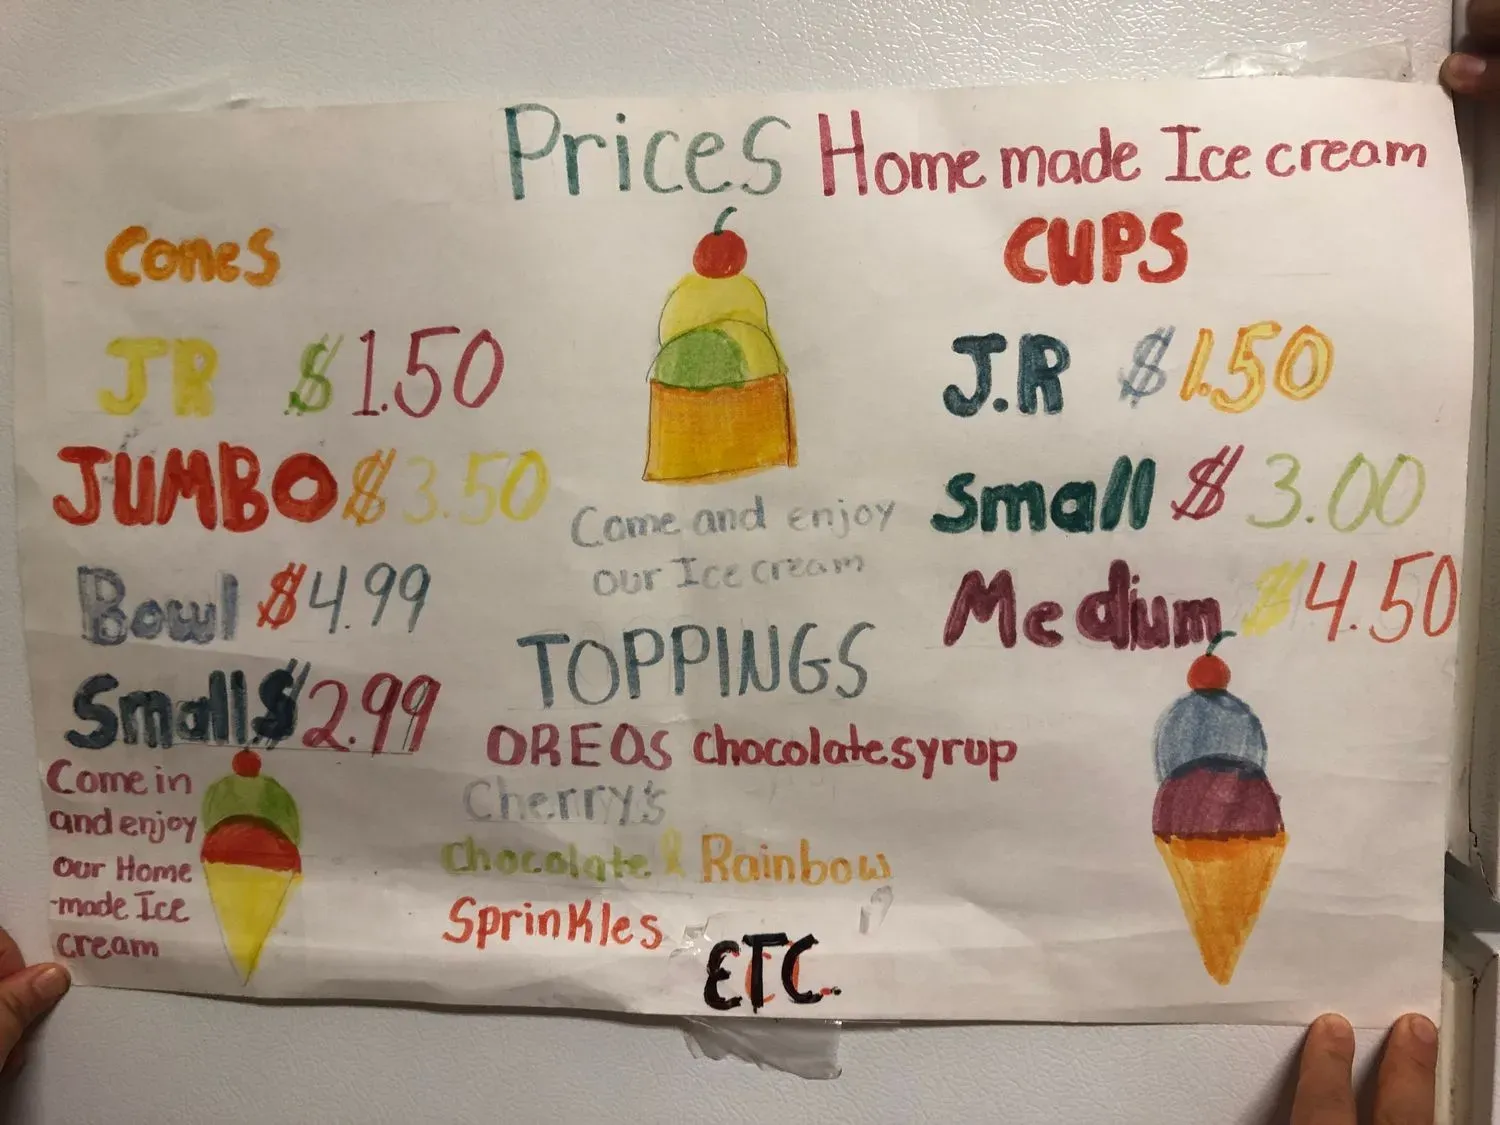 Prices Home made Ice cream
Cones
JR $1.50
JUMBO $3.50
Bowl $4.99
Small $2.99
Come in
and enjoy
our Home
-made Ice
cream
Come and enjoy
our Ice cream
TOPPINGS
OREOS chocolate syrup
Cherry's
chocolate & Rainbow
Sprinkles
ETC.
CUPS
J.R $1.50
Small $3.00
Medium $4.50